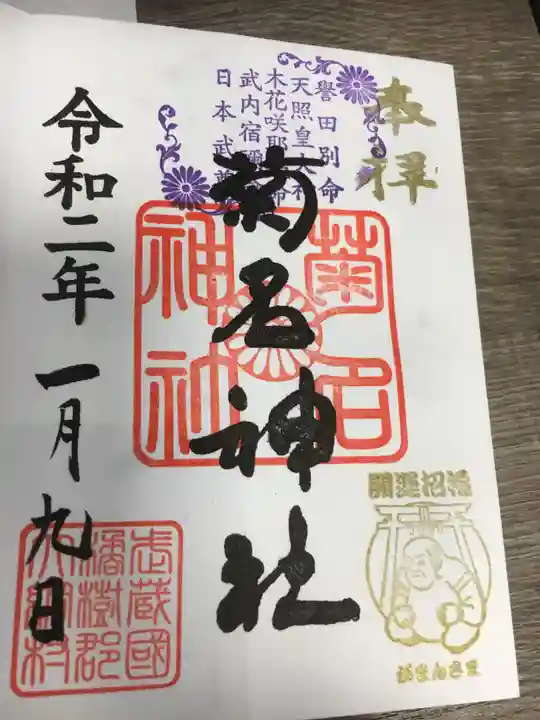 奉拝
譽田別命
天照皇大神
木花咲耶姫命
武内宿禰命
日本武尊
菊名神社
菊名
神社
開運招福
がまんさま
令和二年一月九日
武蔵國
橘樹郡
大綱村